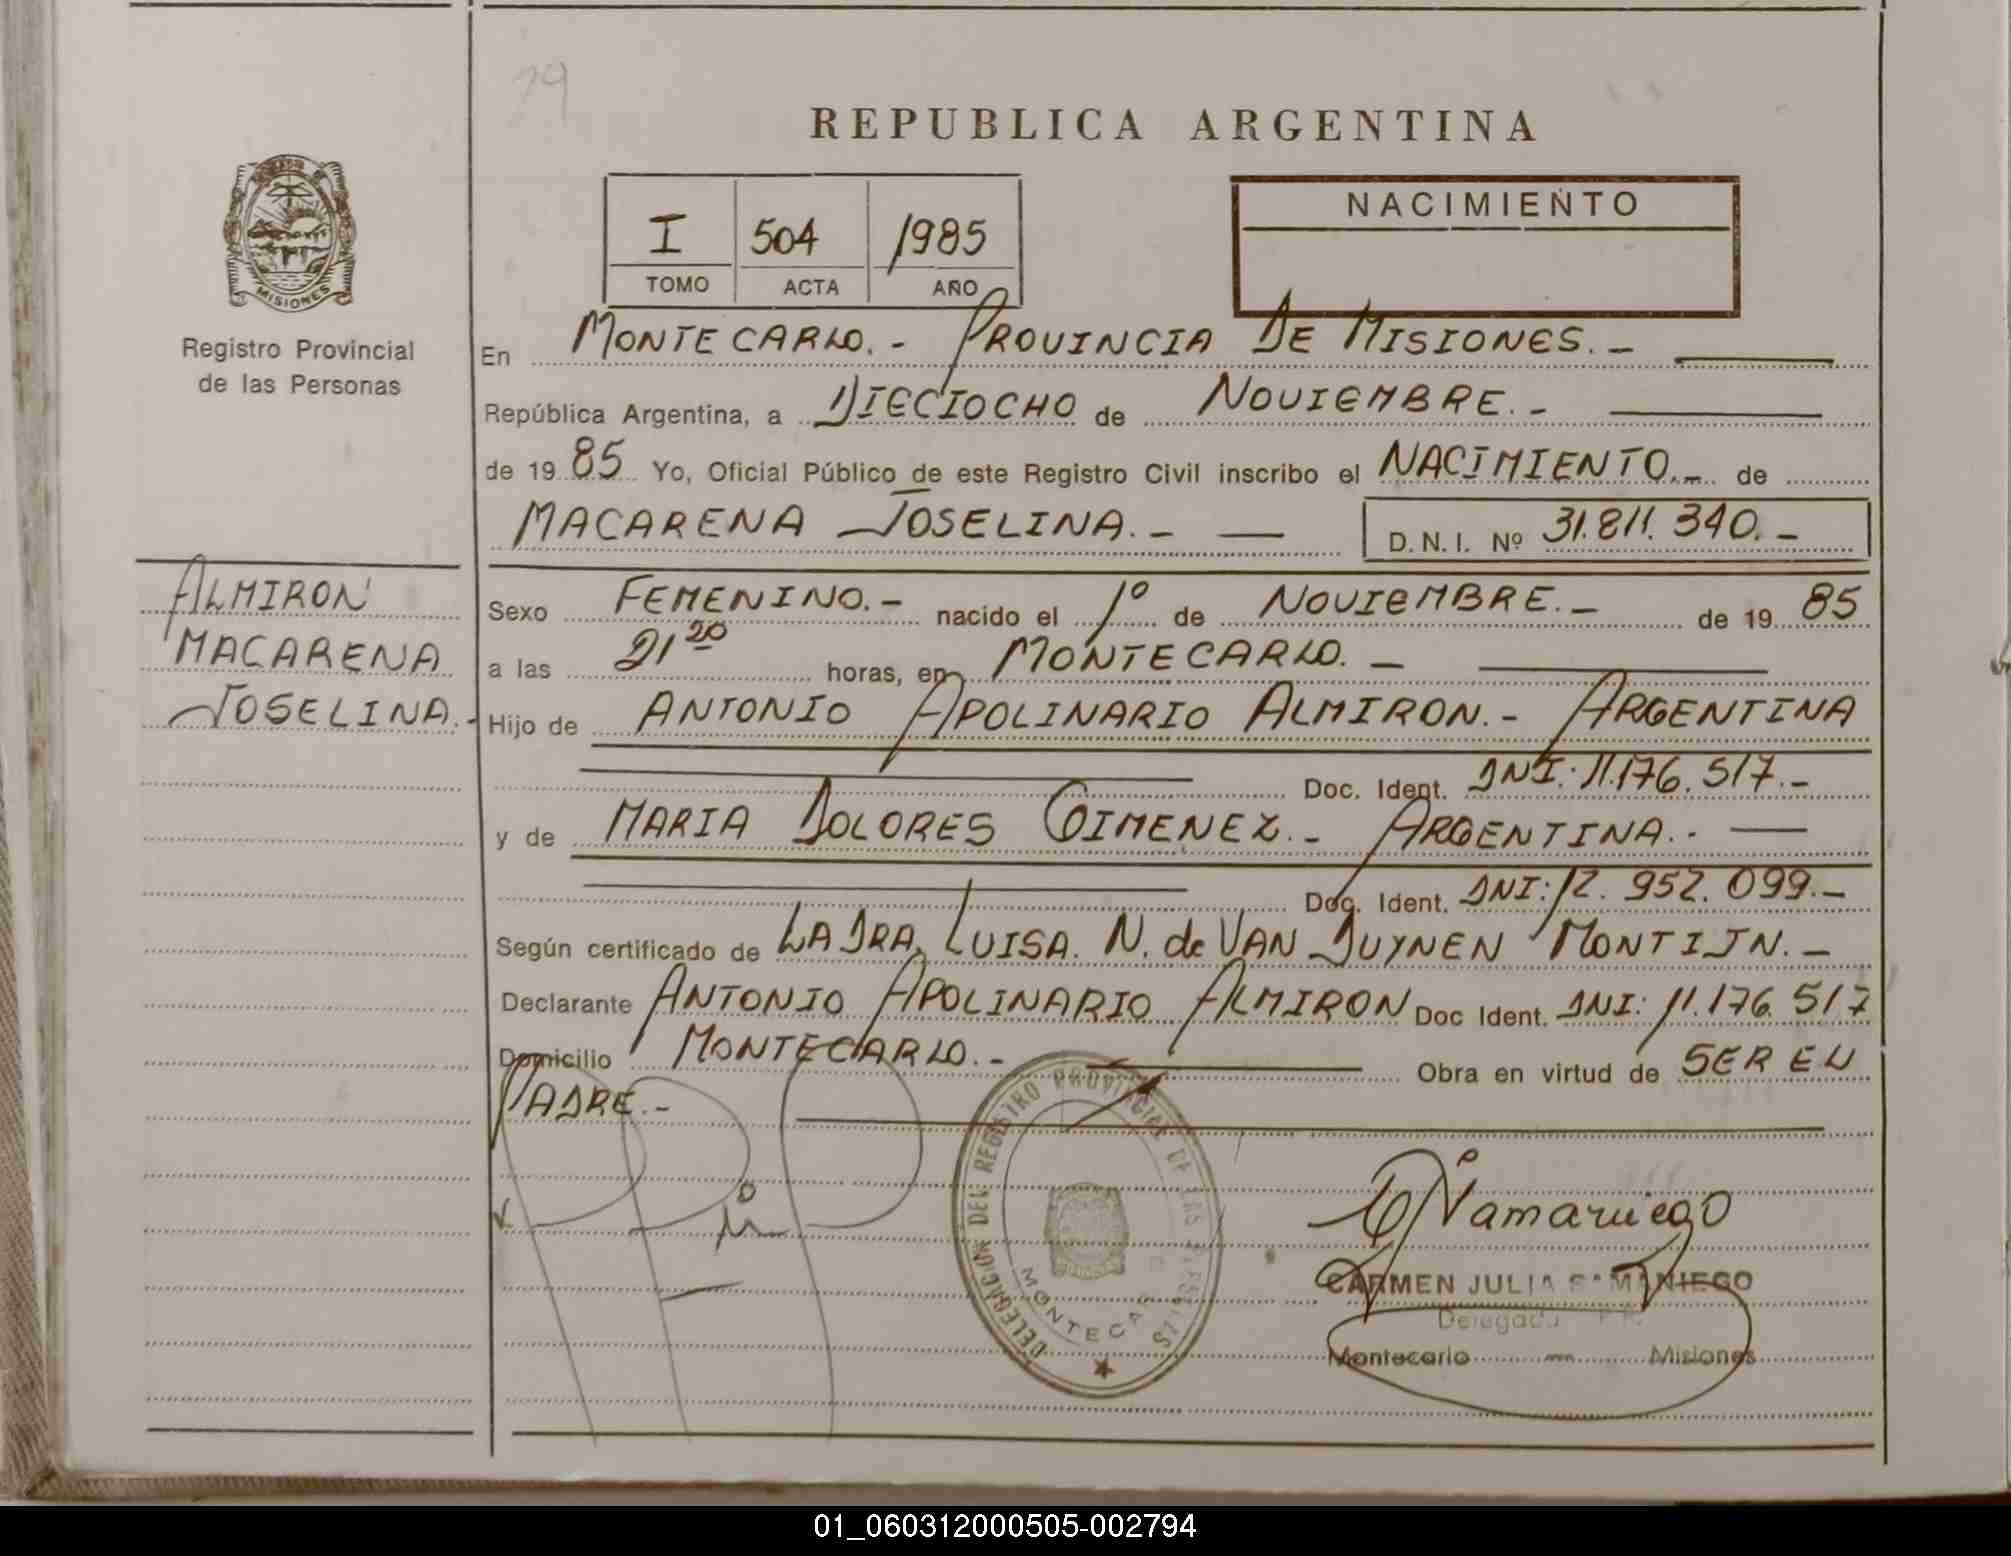 79
REPUBLICA ARGENTINA
NACIMIENTO
I 504 1985
TOMO ACTA AÑO
MISIONES
Registro Provincial
de las Personas
En MONTECARLO.- PROVINCIA DE MISIONES.-
República Argentina, a DIECIOCHO de NOVIEMBRE.-
de 19 85 Yo, Oficial Público de este Registro Civil inscribo el NACIMIENTO.- de
MACARENA JOSELINA.- D.N.I. Nº 31.811.340.-
ALMIRON
MACARENA
JOSELINA.-
Sexo FEMENINO.- nacido el 1º de NOVIEMBRE.- de 19 85
a las 21 20 horas, en MONTECARLO.-
Hijo de ANTONIO APOLINARIO ALMIRON.- ARGENTINA
Doc. Ident. DNI: 11.176.517.-
y de MARIA DOLORES GIMENEZ.- ARGENTINA.-
Doc. Ident. DNI: 12.952.099.-
Según certificado de LA DRA. LUISA. N. de VAN DUYNEN MONTIJN.-
Declarante ANTONIO APOLINARIO ALMIRON Doc Ident. DNI: 11.176.517
Domicilio MONTECARLO.- Obra en virtud de SER EL
PADRE.-
DELEGACION DEL REGISTRO PROVINCIAL DE LAS PERSONAS
MONTECAR
CARMEN JULIA SAMANIEGO
Delegada
Montecarlo - Misiones
01_060312000505-002794